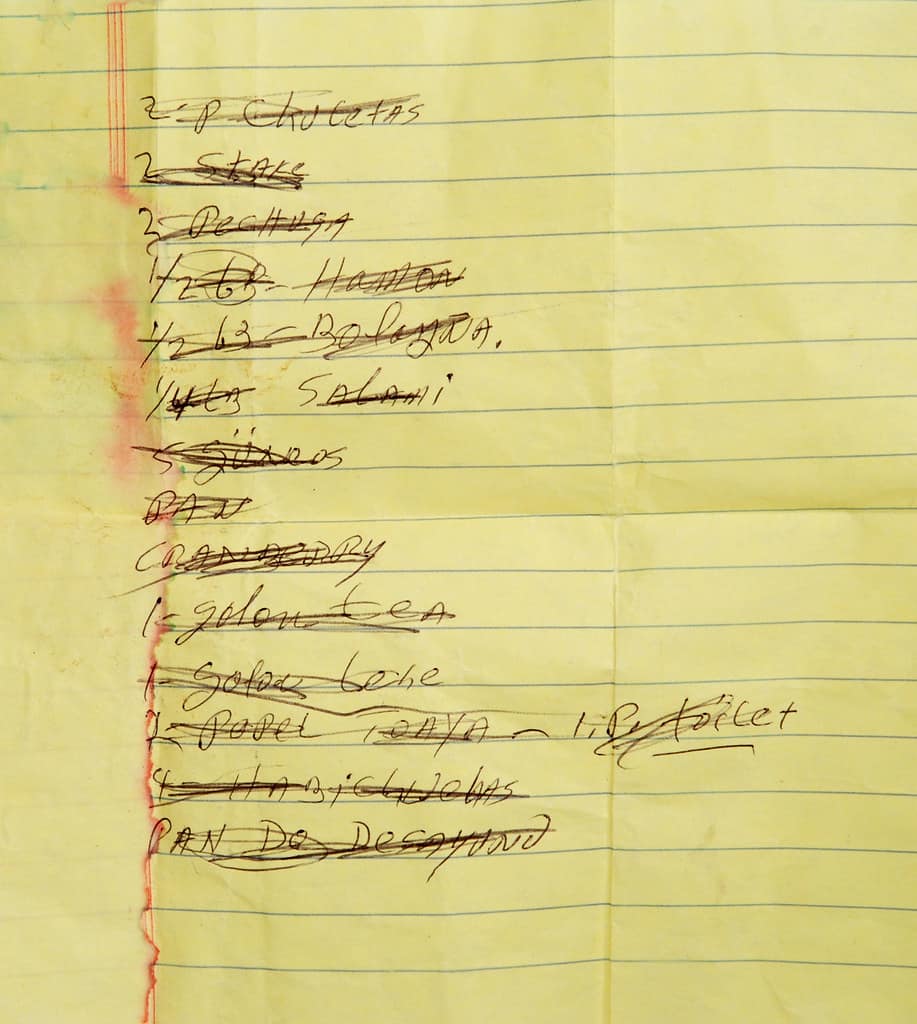 2-P Chuletas
2 Stake
2-Pechuga
1/2 lb- Hamon
1/2 lb-Bologna.
1/4 lb Salami
5
PAN
CRANBERRY
1-golon tea
1-Golon leche
2-Papel Toaya - 1.P. toilet
4-Habichuelas
PAN De Desayuno